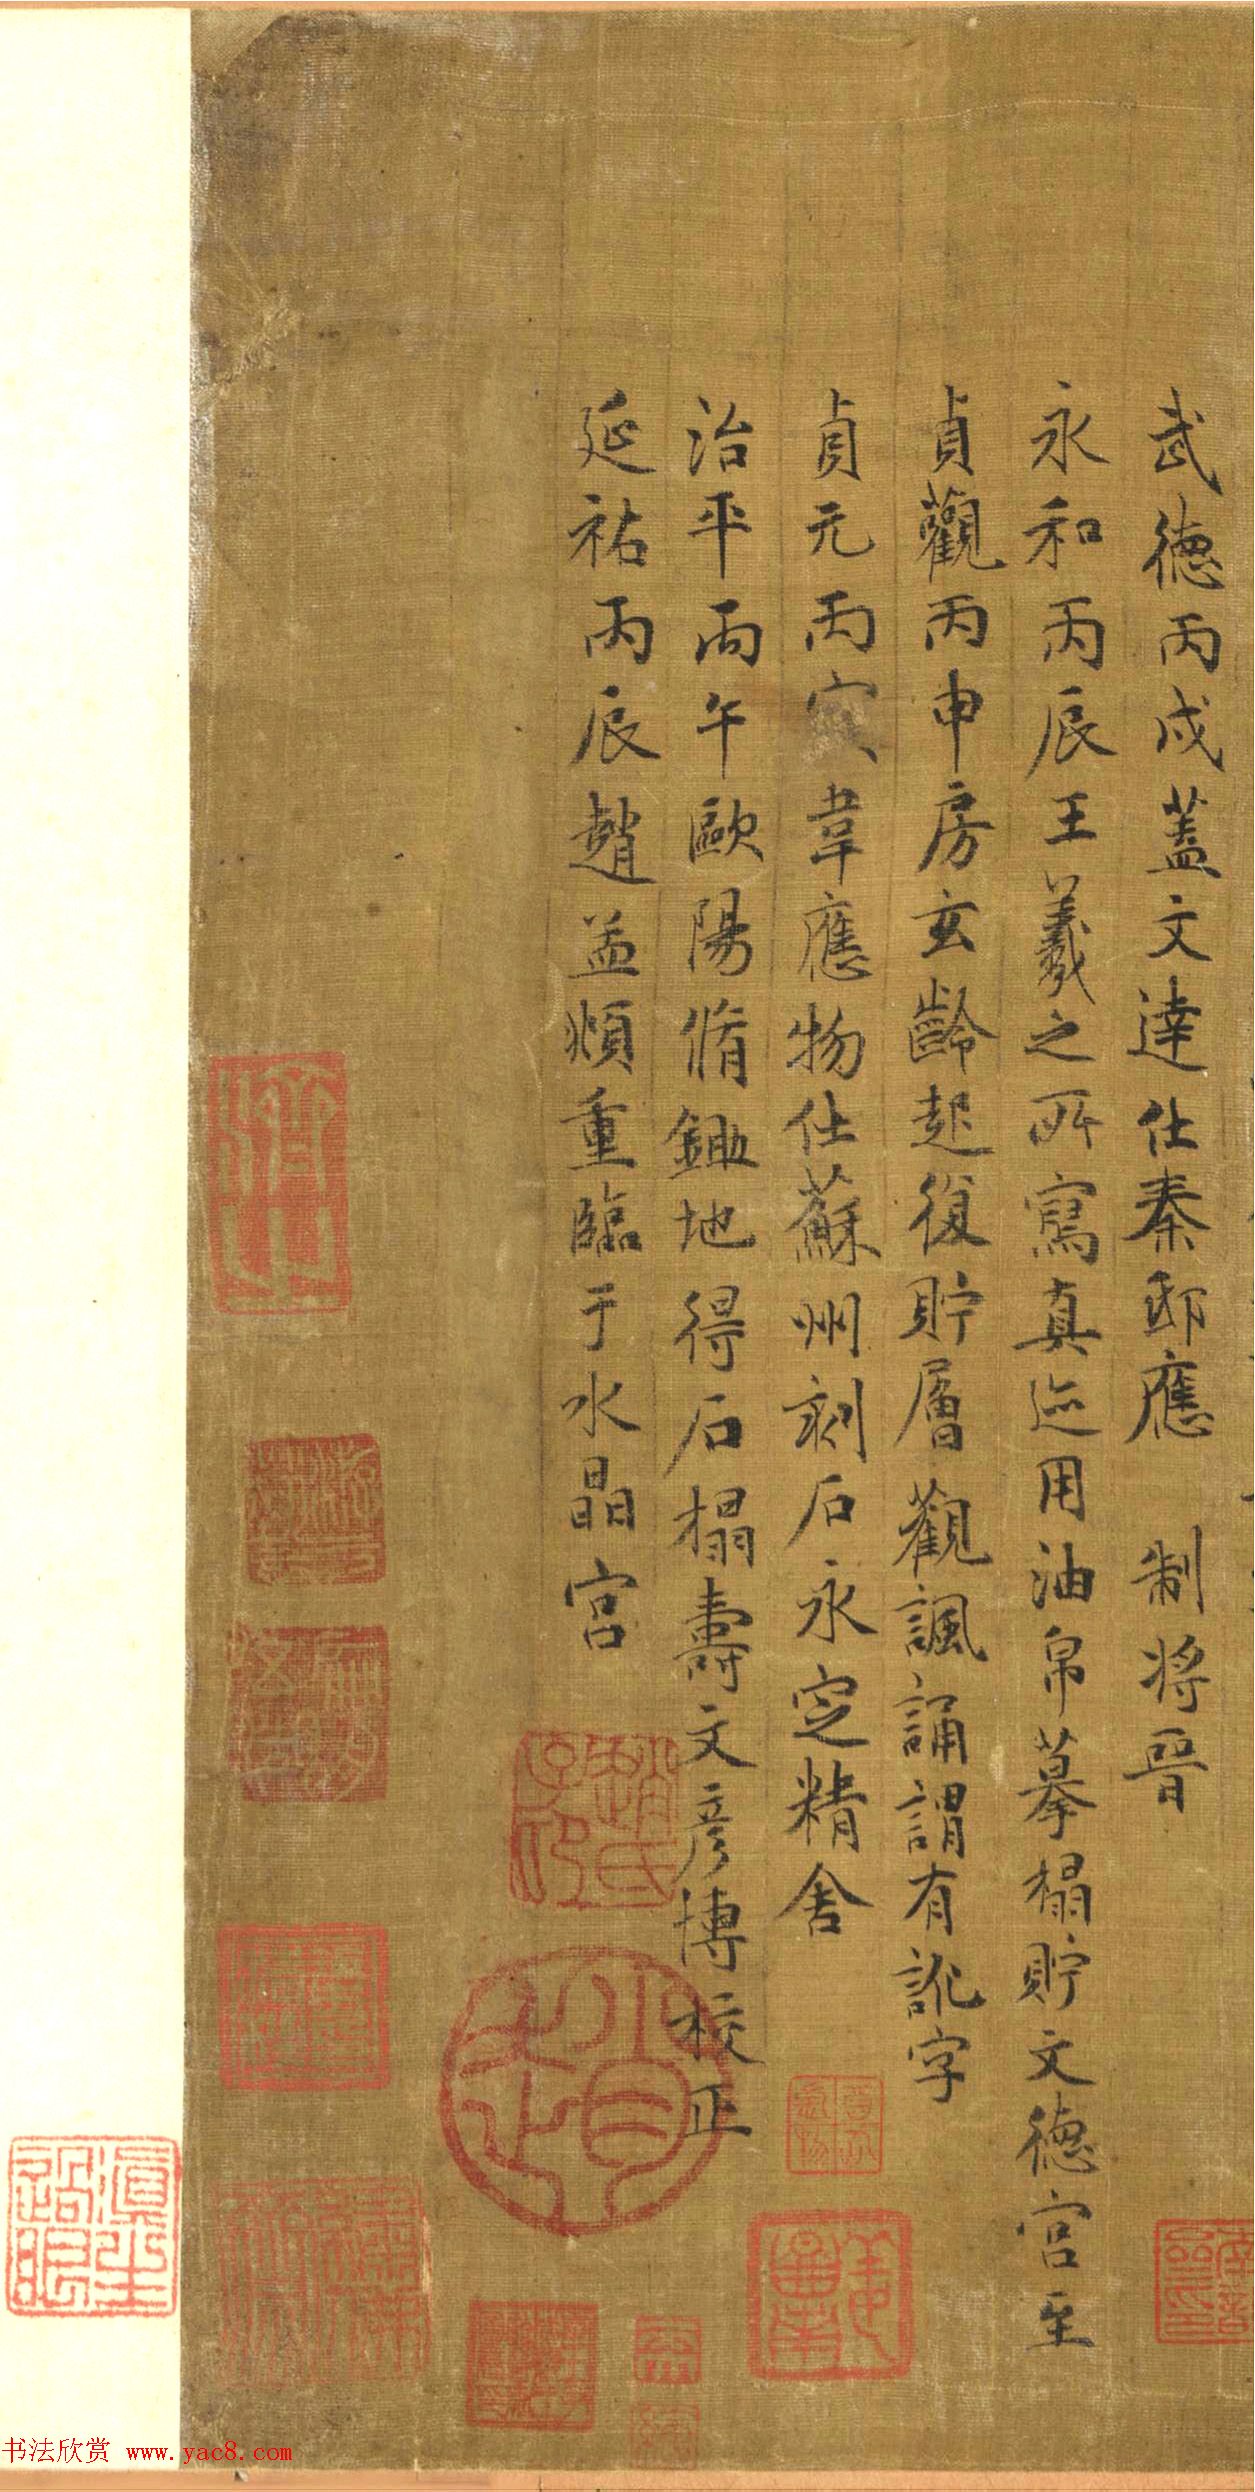 武德丙戌蓋文達仕秦邸應 制將晉
永和丙辰王羲之所寫真迹用油帛摹榻貯文德宮至
貞觀丙申房玄齡起復貯層觀諷誦謂有訛字
貞元丙寅韋應物仕蘇州刻石永定精舍
治平丙午歐陽脩鋤地得石榻壽文彥博校正
延祐丙辰趙孟頫重臨于水晶宮
趙氏子印
趙
书法欣赏 www.yac8.com